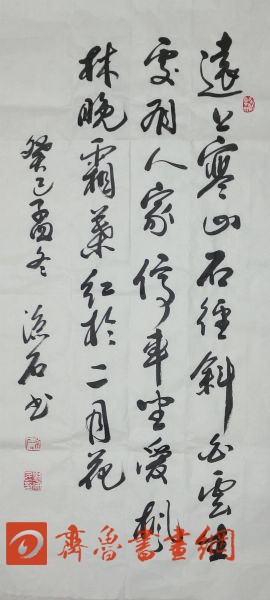 遠上寒山石徑斜白雲生
處有人家停車坐愛楓
林晚霜葉紅於二月花
癸巳孟冬 石书
齊魯書畫網